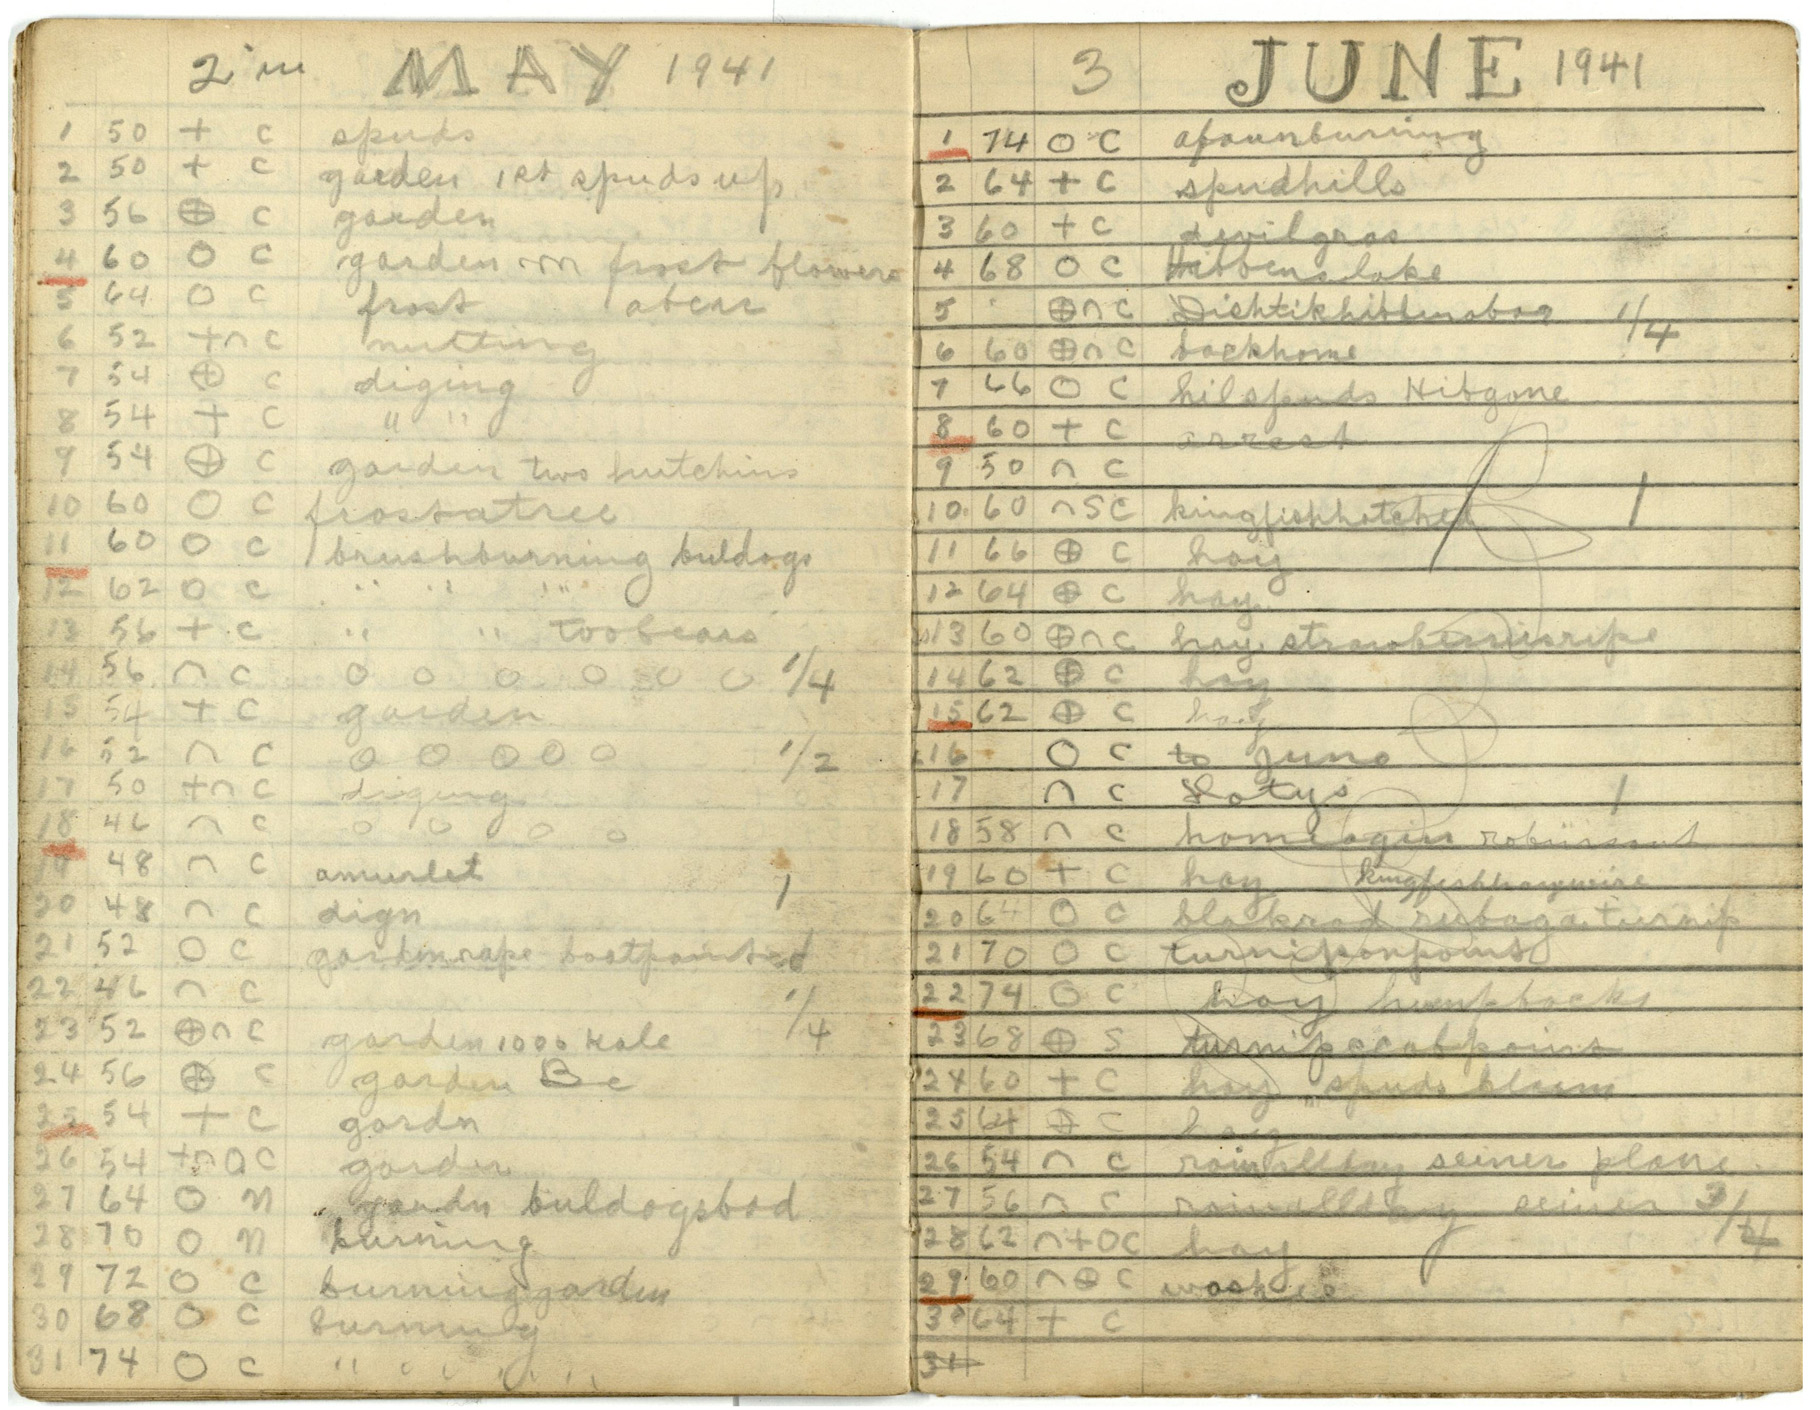 2 in MAY 1941
1 50 + C spuds
2 50 + C garden 1st spuds up
3 56 ⊕ C garden
4 60 O C garden frost flowers
5 64 O C frost abear
6 52 +∩ C nutting
7 54 ⊕ C diging
8 54 + C " "
9 54 ⊕ C garden two hutchins
10 60 O C frostatree
11 60 O C brushburning buldogs
12 62 O C " " "
13 56 + C " " toobears
14 56 ∩ C O O O O O O 1/4
15 54 + C garden
16 52 ∩ C O O O O O 1/2
17 50 +∩ C diging
18 46 ∩ C O O O O
19 48 ∩ C amurlet 1
20 48 ∩ C dign
21 52 O C gardenrape boatpainted
22 46 ∩ C 1/4
23 52 ⊕∩ C garden 1000 Kale
24 56 ⊕ C garden Be
25 54 + C gardn
26 54 +∩O C garden
27 64 O N gardn buldogsbad
28 70 O N burning
29 72 O C burninggarden
30 68 O C burning
31 74 O C " " " "
3 JUNE 1941
1 74 O C burning
2 64 + C spudhills
3 60 + C devilgras
4 68 O C Hibbens lake
5 ⊕∩ C 1/4
6 60 ⊕∩ C backhome
7 66 O C hilspuds Hibgone
8 60 + C arrest
9 50 ∩ C
10 60 ∩ S C kingfishhatched 1
11 66 ⊕ C hay
12 64 ⊕ C hay
13 60 ⊕∩ C hay strawberrisripe
14 62 ⊕ C hay
15 62 ⊕ C hay
16 O C to juno
17 ∩ C 1
18 58 ∩ C homeagin
19 60 + C hay
20 64 O C rubaga turnip
21 70 O C
22 74 O C hay humpbacks
23 68 ⊕ S
24 60 + C hay spuds bloom
25 64 ⊕ C hay
26 54 ∩ C rainallday seiner plane
27 56 ∩ C rainallday seiner 3/4
28 62 ∩+O C hay
29 60 ∩⊕ C
30 64 + C
31